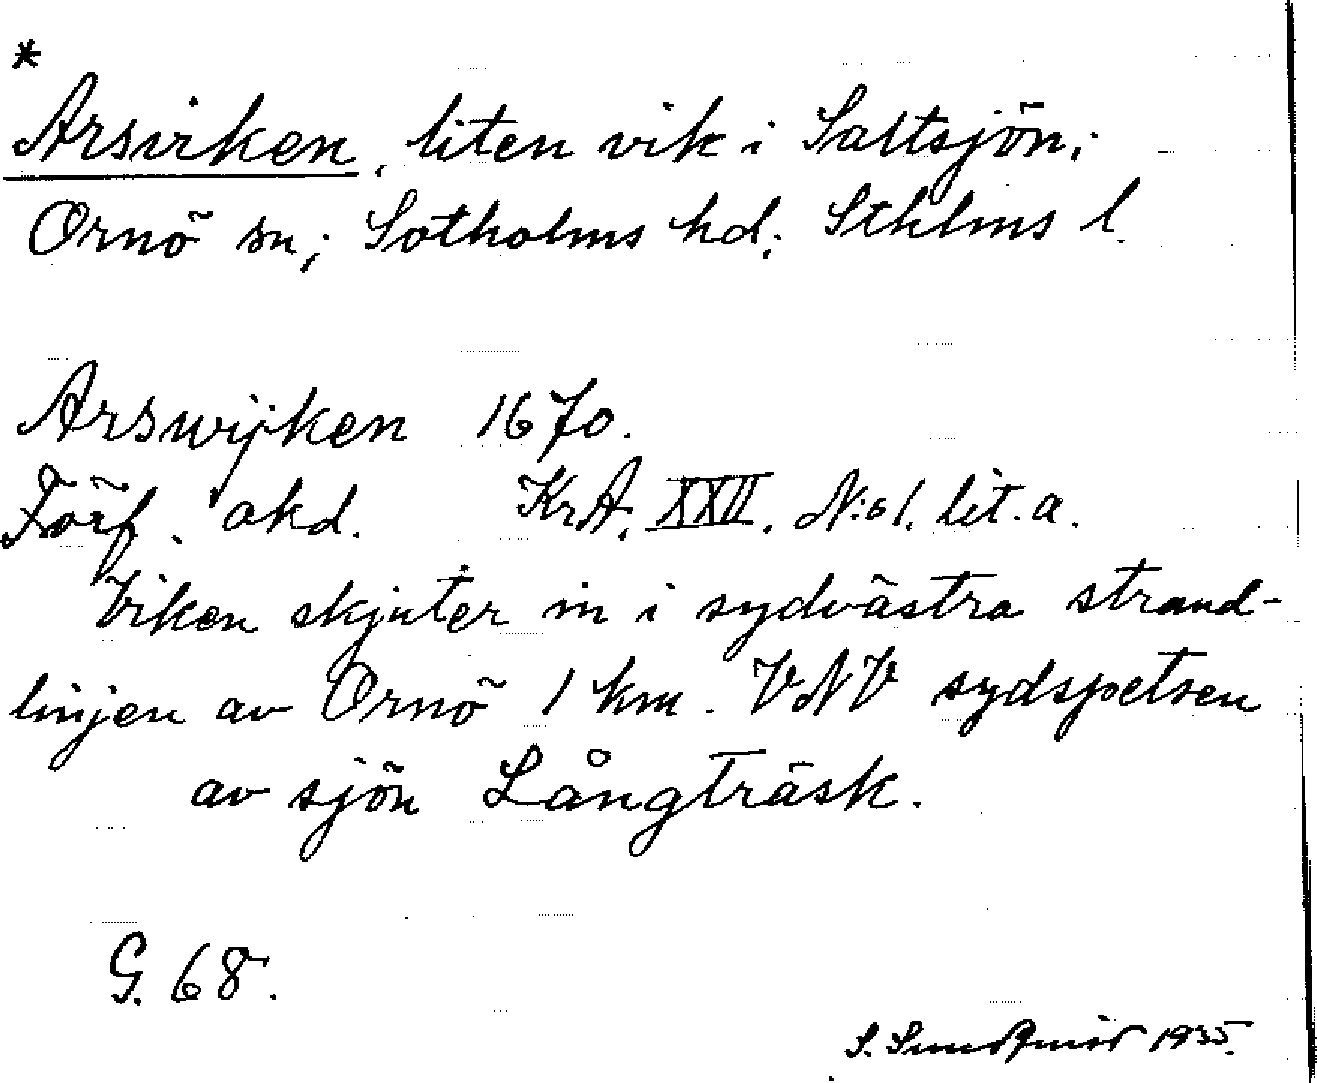 *
Arsviken, liten vik i Saltsjön;
Ornö sn; Sotholms hd; Sthlms l.
Arswijken 1670.
Förf. okd. KrA. XXII. N:o 1. lit. a.
Viken skjuter in i sydvästra strand-
linjen av Ornö 1 km. VNV sydspetsen
av sjön Långträsk.
G. 68.
S. Sundqvist 1935.